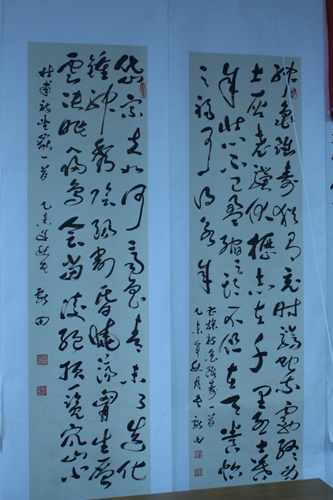 神龟虽寿犹有竟时腾蛇乘雾终为
土灰老骥伏枥志在千里烈士暮
年壮心不已盈缩之期不但在天养怡
之福可得永年
龟虽寿一首
乙未年秋月
岱宗夫如何齐鲁青未了造化
钟神秀阴阳割昏晓荡胸生层
云决眦入归鸟会当凌绝顶一览众山小
杜甫诗望岳一首 乙未